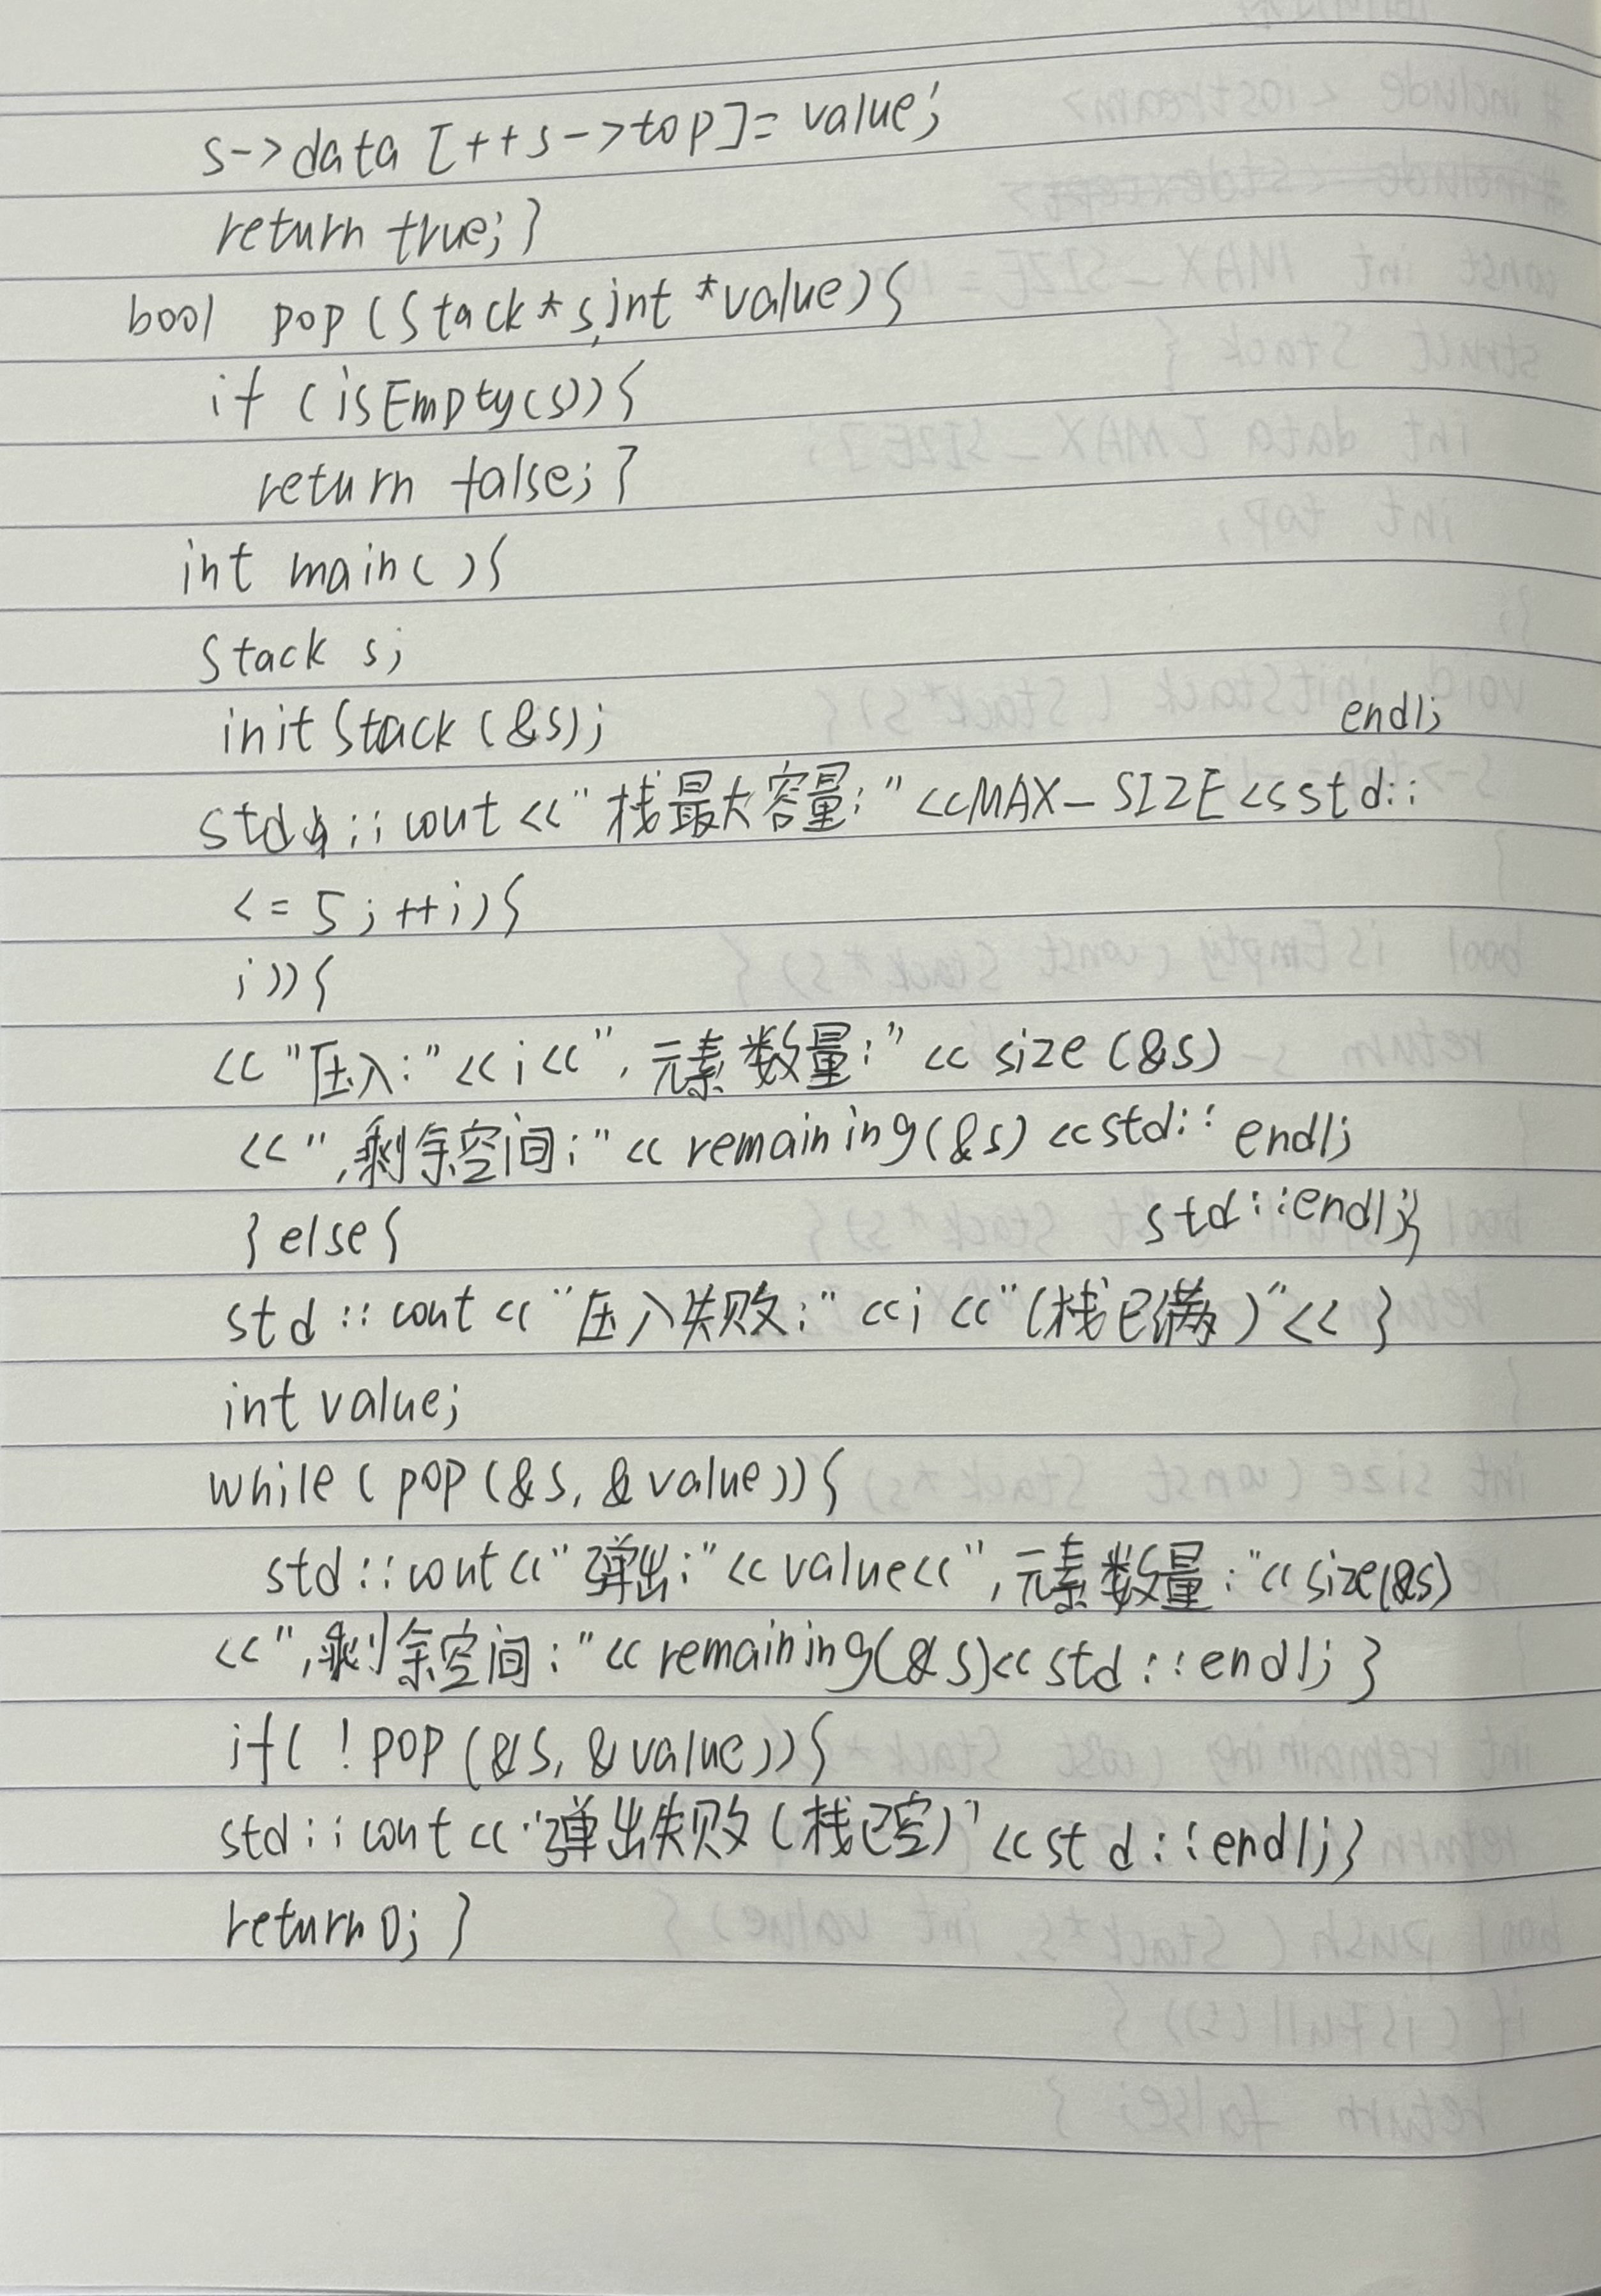 s->data[++s->top]=value;
return true;}
bool pop(Stack*s,int *value){
if (isEmpty(s)){
return false;}
int main(){
Stack s;
initStack(&s);
endl;
std::cout<<"栈最大容量:"<<MAX_SIZE<<std::
<=5;++i){
i)){
<<"压入:"<<i<<",元素数量:"<<size(&s)
<<",剩余空间:"<<remaining(&s)<<std::endl;
}else{
std::endl;}
std::cout<<"压入失败:"<<i<<"(栈已满)"<< }
int value;
while(pop(&s,&value)){
std::cout<<"弹出:"<<value<<",元素数量:"<<size(&s)
<<",剩余空间:"<<remaining(&s)<<std::endl;}
if(!pop(&s,&value)){
std::cout<<"弹出失败(栈已空)"<<std::endl;}
return 0;}